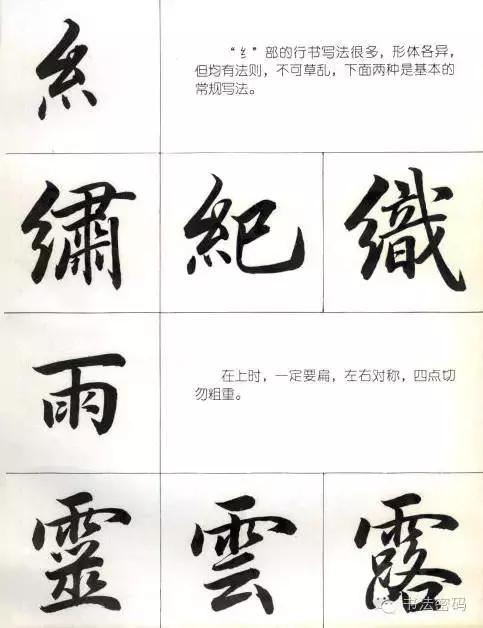 糹
“纟”部的行书写法很多，形体各异，
但均有法则，不可草乱，下面两种是基本的
常规写法。
繡 紀 織
雨
在上时，一定要扁，左右对称，四点切
勿粗重。
靈 雲 露
书法密码